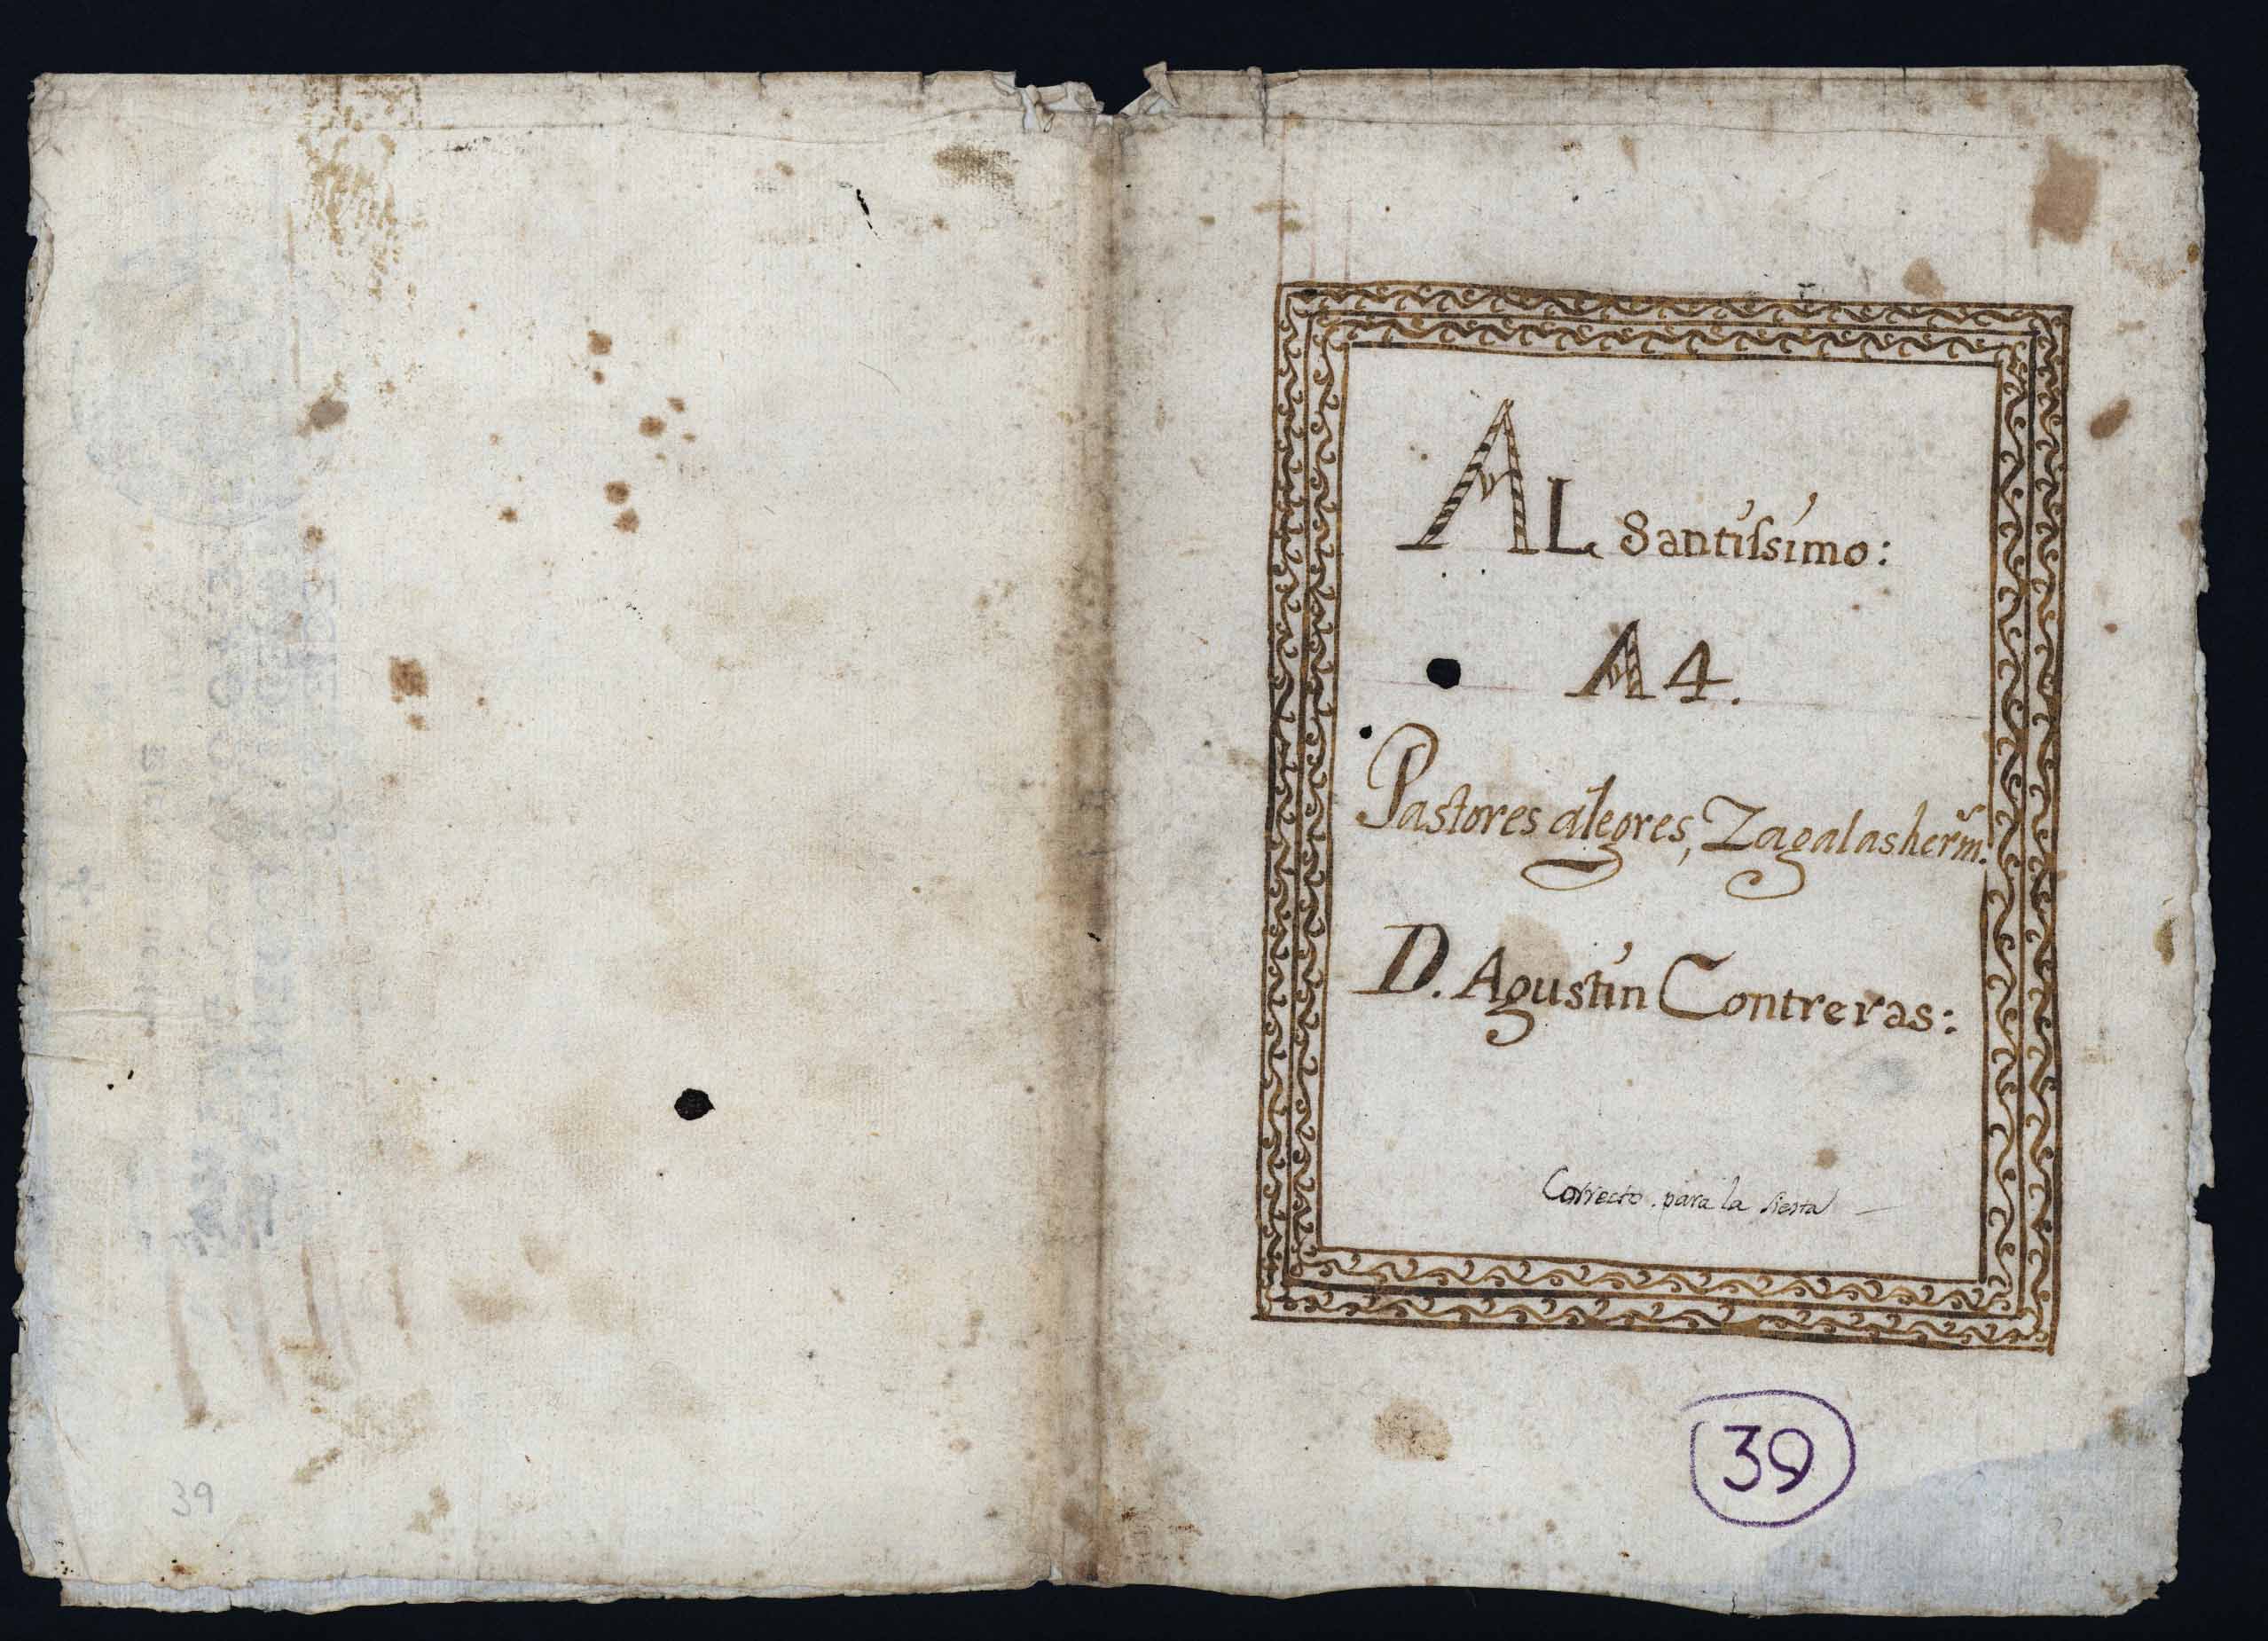 AL Santíſsimo:
A 4.
Pastores alegres, Zagalas herm.s
D. Agustín Contreras:
Correcto. para la siesta
39
39